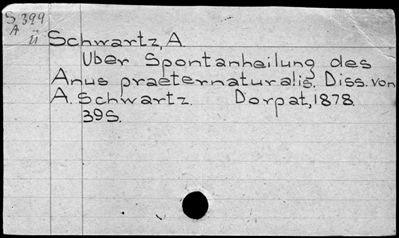 S 399
A
ü
Schwartz, A.
Uber Spontanheilung des
Anus praeternaturalis. Diss. von
A. Schwartz. Dorpat, 1878.
39S.